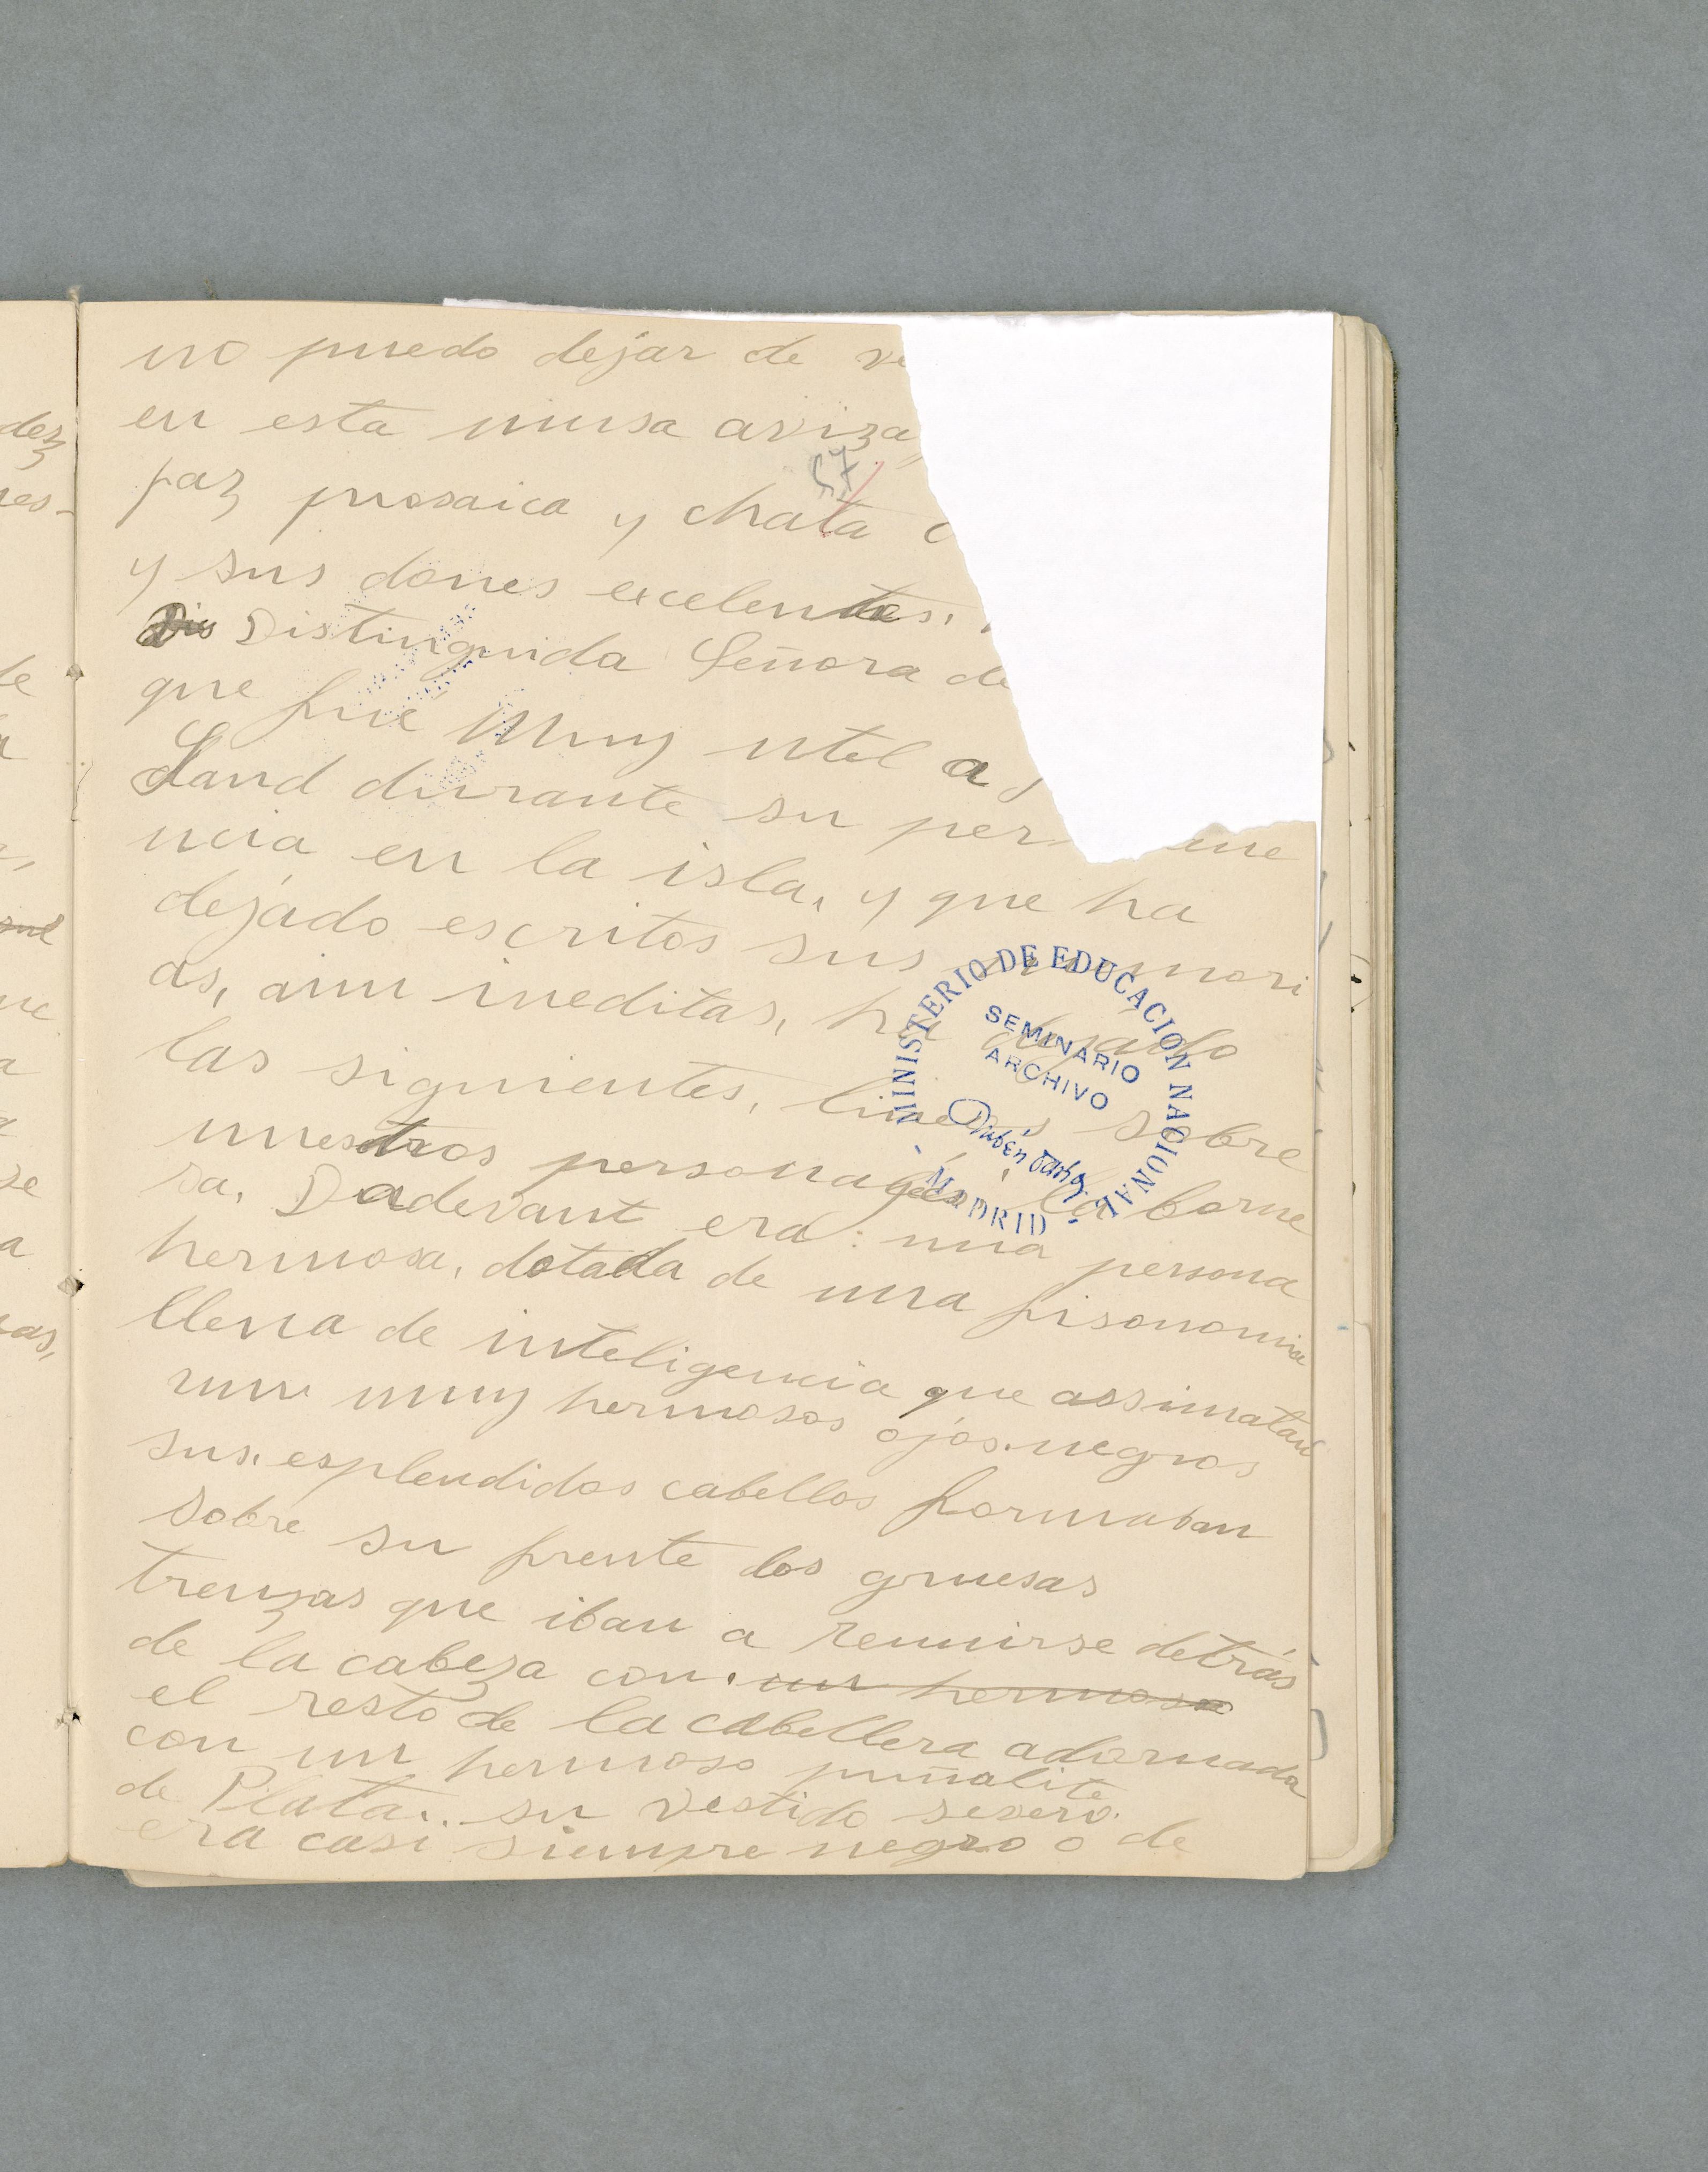 no puedo dejar de ve
en esta musa aviza
57
paz prosaica y chata
y sus dones excelentes.
Dis Distinguida Señora de
que fue Muy util a
Sand durante su per ane
ncia en la isla, y que ha
dejado escritos sus memori
as, aun ineditas, ha dejado
las siguientes, lineas sobre
nuestros personages: la barne
sa. Dadevant era: una persona
hermosa, dotada de una fisonomia
llena de inteligencia que
muy hermosos ojos negros
sus. esplendidos cabellos formaban
sobre su frente dos gruesas
trenzas que iban a reunirse detrás
de la cabeza con. un hermoso
el resto de la cabellera adornada
con un hermoso puñalite
de Plata.. su vestido severo.
era casi siempre negro o de
MINISTERIO DE EDUCACION NACIONAL - MADRID -
SEMINARIO
ARCHIVO
Rubén Darío
dez
res-
de
se